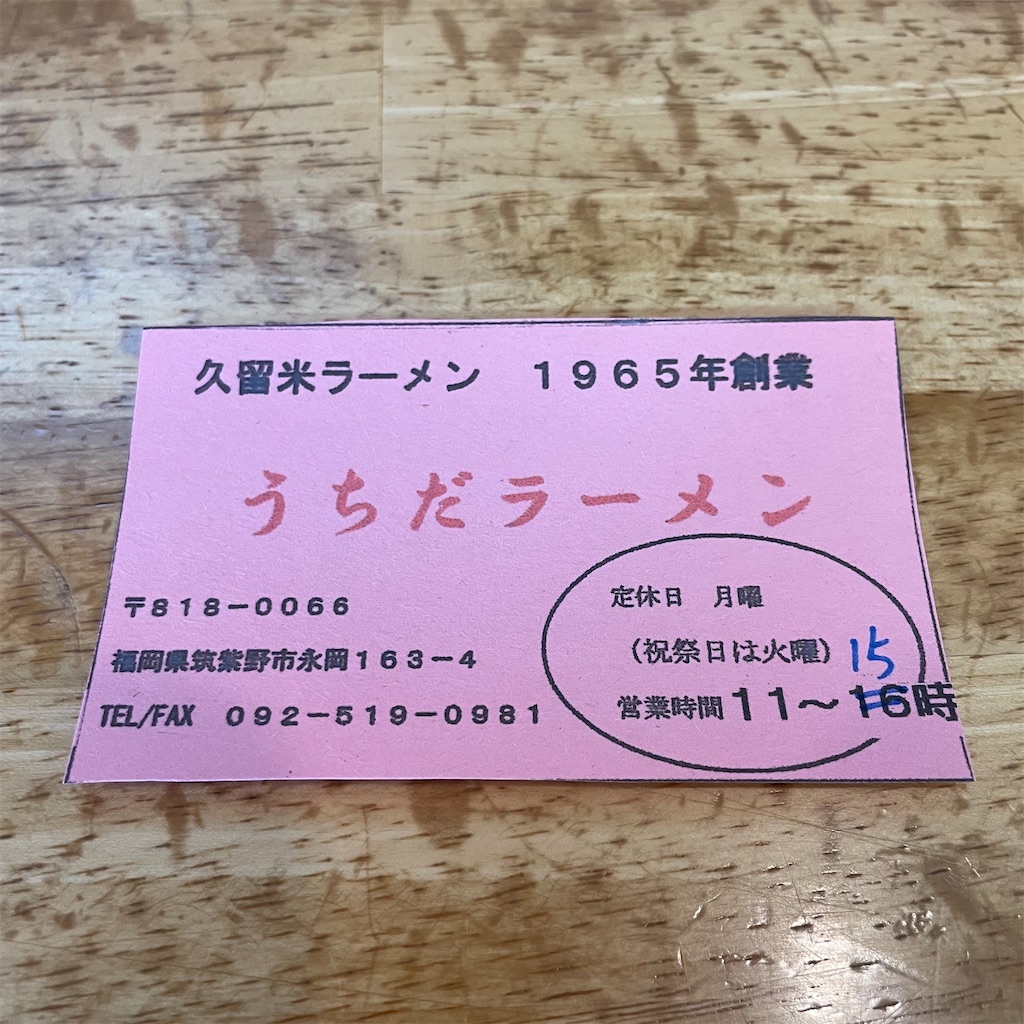 久留米ラーメン　１９６５年創業
うちだラーメン
〒８１８－００６６
福岡県筑紫野市永岡１６３－４
TEL/FAX　０９２－５１９－０９８１
定休日　月曜
（祝祭日は火曜）
15
営業時間１１～１６時